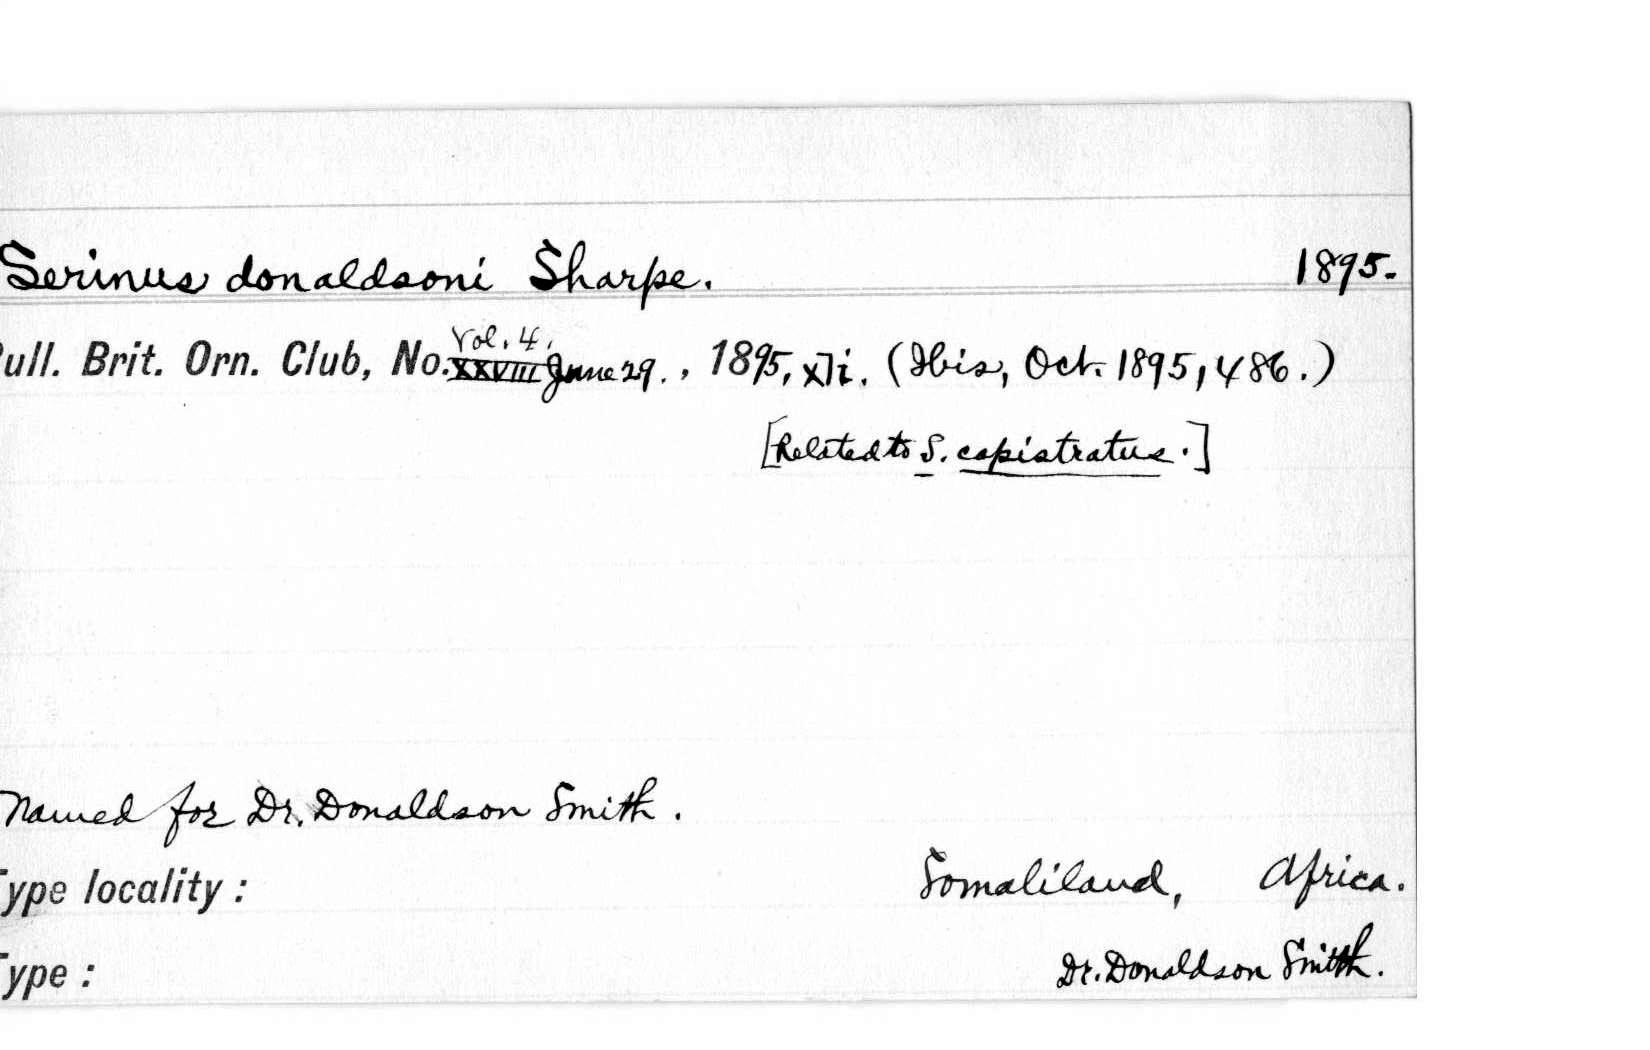 Serinus donaldsoni Sharpe. 1895.
Vol. 4.
ull. Brit. Orn. Club, No. XXVIII June 29. , 1895, xli. (Ibis, Oct. 1895, 486.)
[Related to S. capistratus.]
Named for Dr. Donaldson Smith.
ype locality : Somaliland, Africa.
ype : Dr. Donaldson Smith.